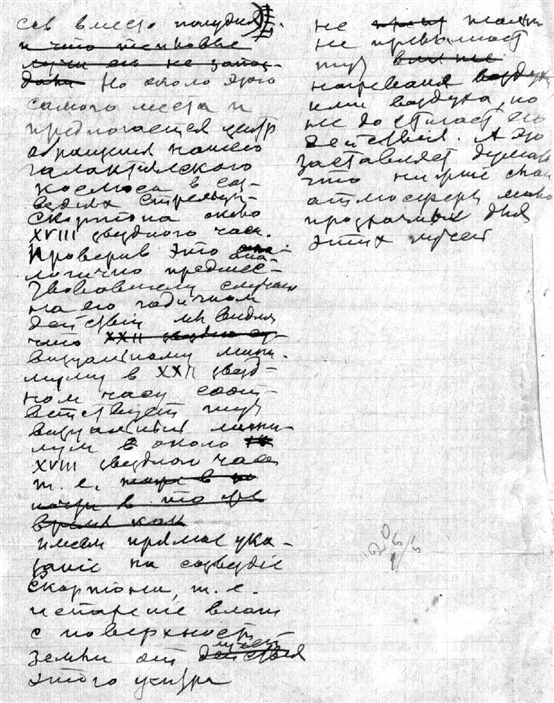 сов вместо полудня
и что тепловые
лучи его не запаз-
дали Но около этого
самого места и
предлогается центр
обращения нашего
галактического
космоса в соз-
вездиях Стрельца-
Скорпиона около
XVIII звездного часа.
Проверив это ана-
логично предшес-
твовавшему случаю
на его годичном
действии мы видим
что XXII звездно
визуальному мини-
муму в XXII звезд-
ном часу соот-
ветствует тут
визуальный мини-
мум в около
XVIII звездного часа
т. е.
почти в то же
время как
имеем прямое ука-
зание на созвездие
Скорпиона, т. е.
испарение влаги
с поверхности
земли от действия лучей
этого центра
не
не превышает
тут
нагревания
или воздуха, но
не достигает его
действия. А это
заставляет думать
что низшие слои
атмосферы мало
прозрачны для
этих лучей